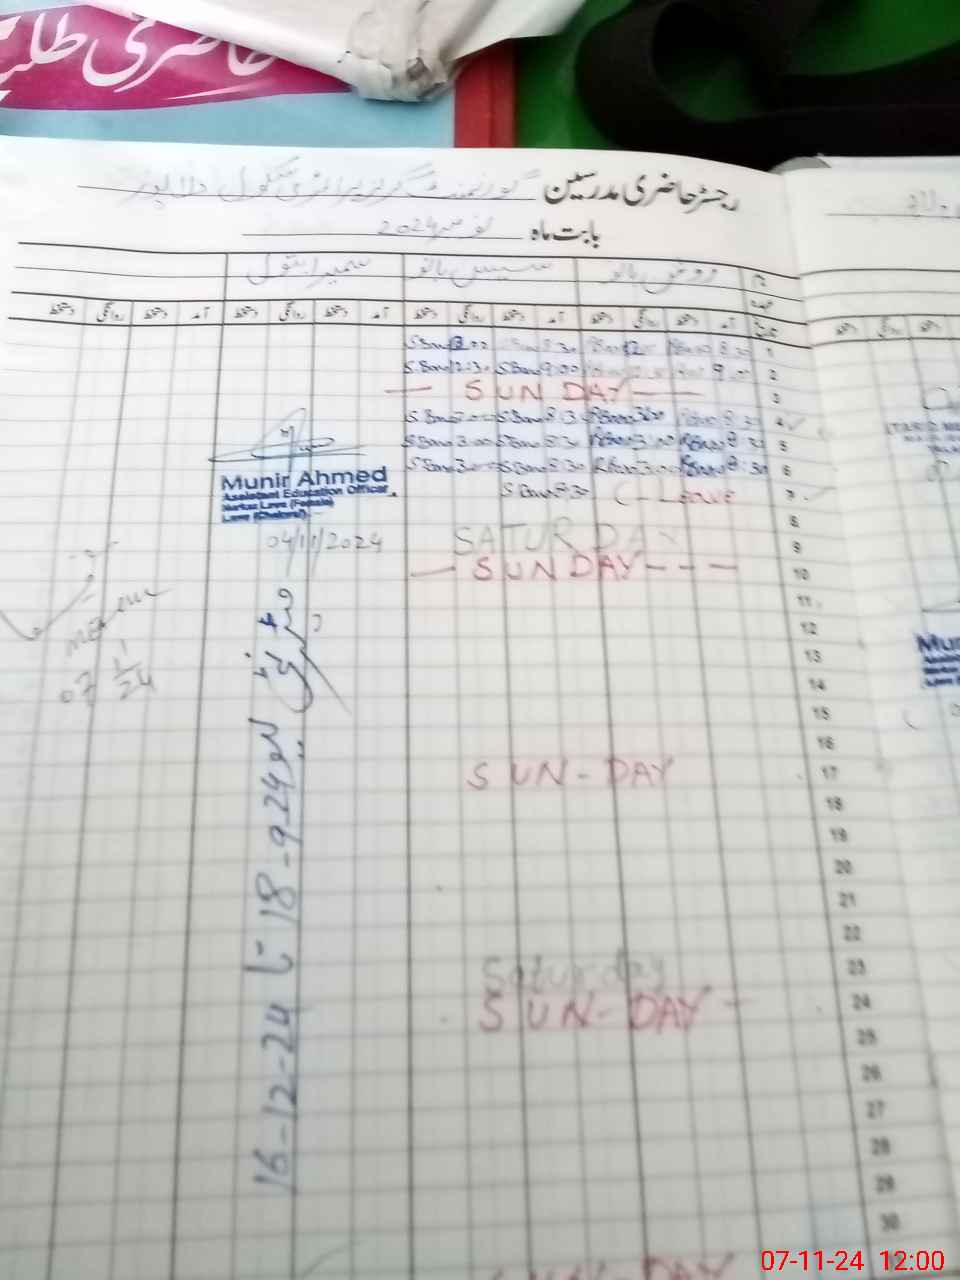 حاضری طلبہ
رجسٹر حاضری مدرسین گورنمنٹ گرلز پرائمری سکول دلاپور
بابت ماہ نومبر 2024
نام سمیرا بتول
تاریخ آمد دستخط روانگی دستخط آمد دستخط روانگی دستخط آمد دستخط روانگی دستخط آمد دستخط روانگی دستخط
1 8:30 8:30 S Bano
2 9:00 S Bano 9:00 S Bano 12:30
3 — SUNDAY —
4 8:30 R Bano 3:00 S Bano 8:30 S Bano 3:00
5 8:30 R Bano 3:00 R Bano 8:30 S Bano 3:00 S Bano
6 8:30 R Bano 3:00 R Bano 8:30 S Bano 3:00 S Bano
7 C-Leave 8:30 S Bano
8
9 SATURDAY
10 — SUNDAY - - -
11
12
13
14
15
16
17 SUN-DAY
18
19
20
21
22
23 Saturday
24 SUN-DAY -
25
26
27
28
29
30
SUN-DAY
Munir Ahmed
Assistant Education Officer
Markaz Lawa (Female)
Lawa (Chakwal)
04/11/2024
07 11/24
میٹرنٹی لیو 18-9-24 تا 16-12-24
Mun
07-11-24 12:00